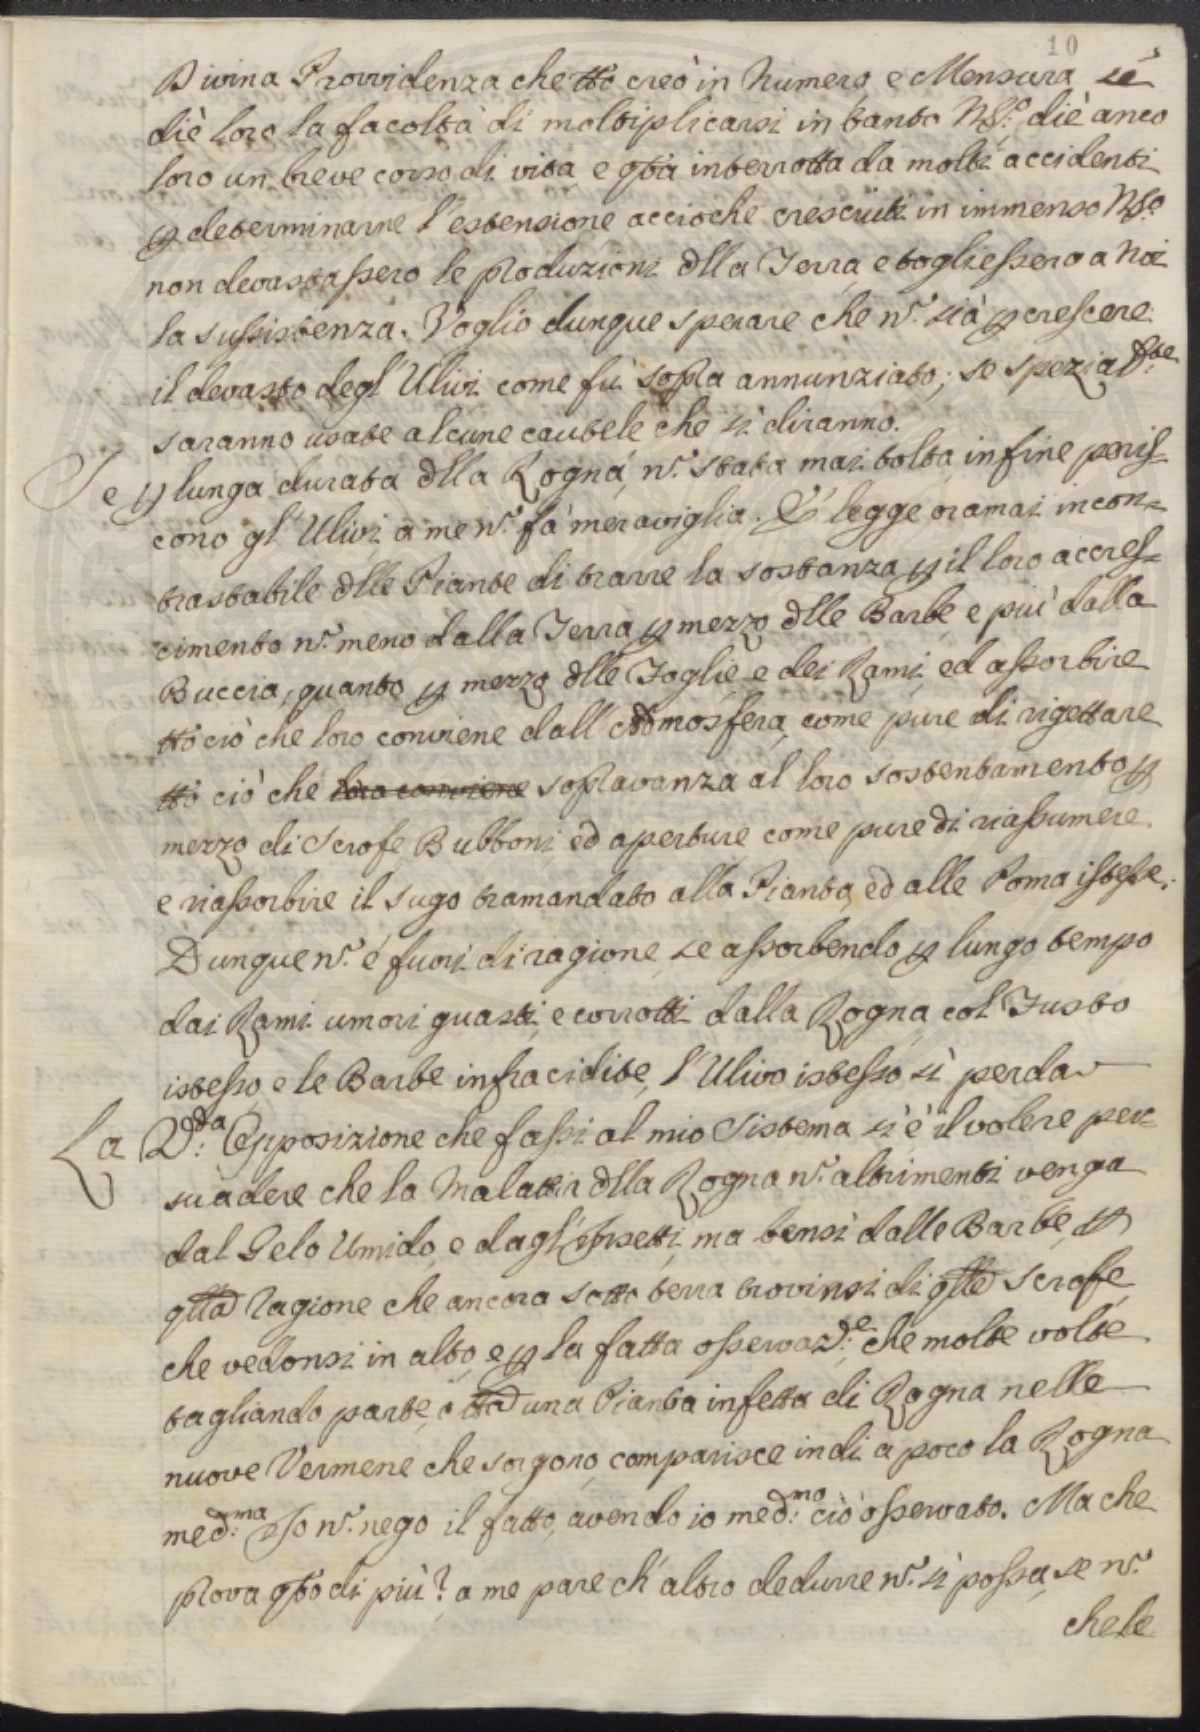 10
Divina Provvidenza che tto creò in Numero e Mensura sè
diè loro la facoltà di moltiplicarsi in tanto N͠ro: diè anco
loro un breve corso di vita e qta interrotta da molti accidenti
p determinarne l'estensione accioche cresciuti in immenso N͠ro
non devastassero le produzioni dlla Terra e togliessero a Noi
la sussistenza. Voglio dunque sperare che n. sia p crescere
il devasto degl'Ulivi come fu sopra annunziato; se spezial:te
saranno usate alcune cautele che si diranno.
Se p lunga durata dlla Rogna, n. stata mai tolta, infine peris=
cono gl'Ulivi, a me n. fa meraviglia. È legge oramai incon=
trastabile dlle Piante di trarre la sostanza p il loro accres=
cimento n. meno dalla Terra p mezzo dlle Barbe e più dalla
Buccia, quanto p mezzo dlle Foglie e dei Rami, ed assorbire
tto ciò che loro conviene dall'Atmosfera, come pure di rigettare
tto ciò che loro conviene sopravanza al loro sostentamento p
mezzo di Scrofe, Bubboni ed aperture, come pure di riassumere
e riassorbire il sugo tramandato alla Pianta, ed alle Poma istesse.
Dunque n. è fuori di ragione, se assorbendo p lungo tempo
dai Rami umori guasti, e corrotti dalla Rogna, col Fusto
istesso, e le Barbe infracidite, l'Ulivo istesso si perda
La 2:da Opposizione che fassi al mio Sistema si è il volere per=
suadere che la Malattia dlla Rogna n. altrimenti venga
dal Gelo Umido, e dagl'Insetti, ma bensì dalle Barbe, p
qlla ragione che ancora sotto terra trovinsi di qlle Scrofe,
che vedonsi in alto, e p la fatta osservaz:e, che molte volte
tagliando parte, o tta una Pianta infetta di Rogna nelle
nuove Vermene che sorgono, comparisce indi a poco la Rogna
med:ma Io n. nego il fatto, avendo io med:mo ciò osservato. Ma che
prova qto di più? a me pare ch'altro dedurre n. si possa, se n.
che le